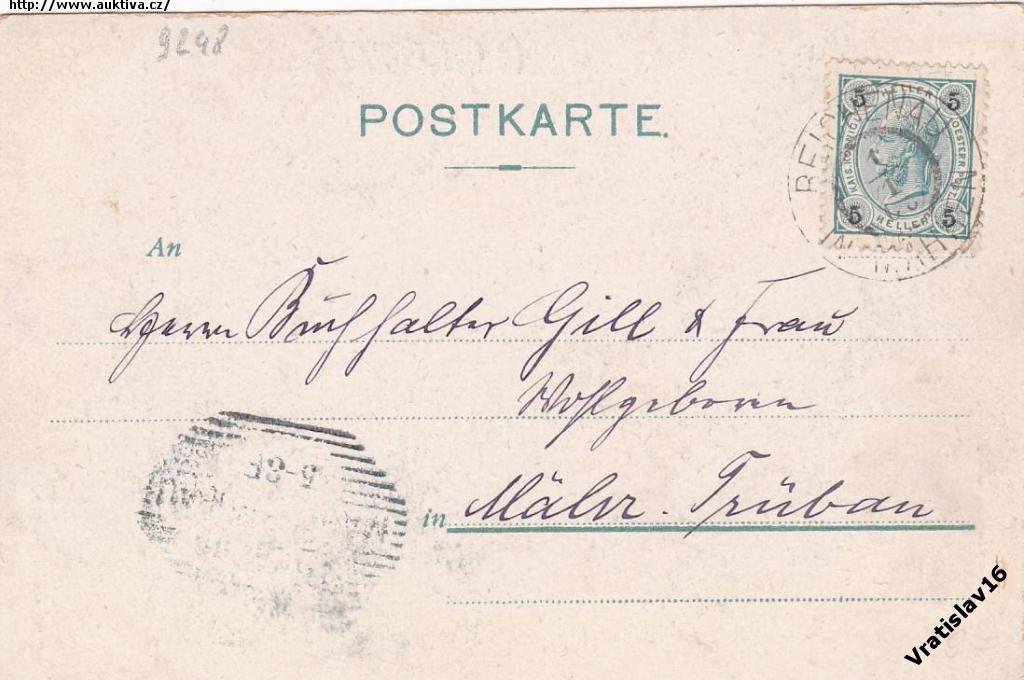 http://www.auktiva.cz/
9248
POSTKARTE.
5 HELLER 5
KAIS. KOENIGL. OESTERR. POST.
5 HELLER 5
An
Herrn Buchhalter Gill & Frau
Wohlgeboren
in Mähr. Trübau
Vratislav16